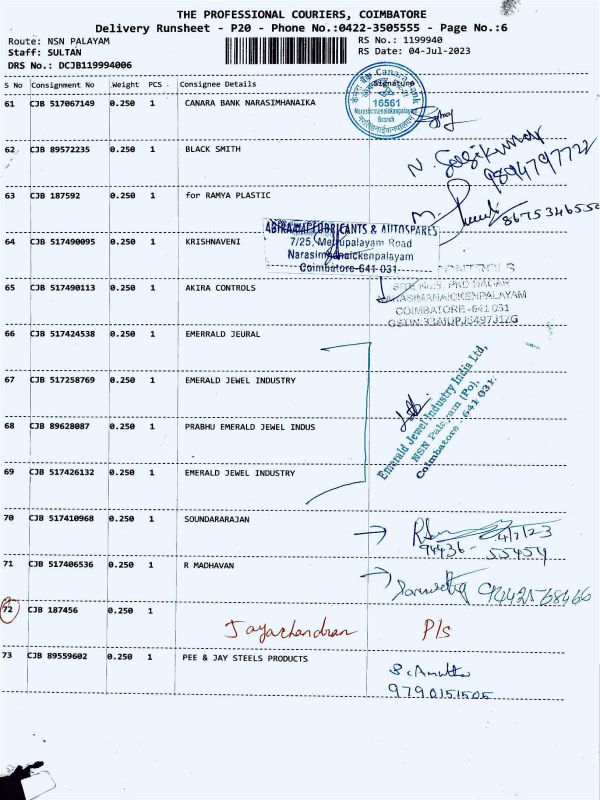 THE PROFESSIONAL COURIERS, COIMBATORE
Delivery Runsheet - P20 - Phone No.:0422-3505555 - Page No.:6
Route: NSN PALAYAM
RS No.: 1199940
Staff: SULTAN
RS Date: 04-Jul-2023
DRS No.: DCJB119994006
S No Consignment No Weight PCS Consignee Details Signature
61 CJB 517067149 0.250 1 CANARA BANK NARASIMHANAIKA
Canara Bank
16561
Branch
62 CJB 89572235 0.250 1 BLACK SMITH
N. Sasikumar
9894797722
63 CJB 187592 0.250 1 for RAMYA PLASTIC
8675346550
ABIRAMI LUBRICANTS & AUTOSPARES
7/25, Mettupalayam Road
Narasimhanaickenpalayam
Coimbatore-641 031
64 CJB 517490095 0.250 1 KRISHNAVENI
65 CJB 517490113 0.250 1 AKIRA CONTROLS
CONTROLS
PKD NAGAR
NARASIMANAICKENPALAYAM
COIMBATORE -641 031
66 CJB 517424538 0.250 1 EMERRALD JEURAL
67 CJB 517258769 0.250 1 EMERALD JEWEL INDUSTRY
Emerald Jewel Industry India Ltd,
NSN Palayam (Po),
Coimbatore - 641 031.
68 CJB 89628087 0.250 1 PRABHU EMERALD JEWEL INDUS
69 CJB 517426132 0.250 1 EMERALD JEWEL INDUSTRY
70 CJB 517410968 0.250 1 SOUNDARARAJAN
4/7/23
94436 - 55454
71 CJB 517406536 0.250 1 R MADHAVAN
9442568466
72 CJB 187456 0.250 1
Jayachandran P/s
73 CJB 89559602 0.250 1 PEE & JAY STEELS PRODUCTS
9790151505